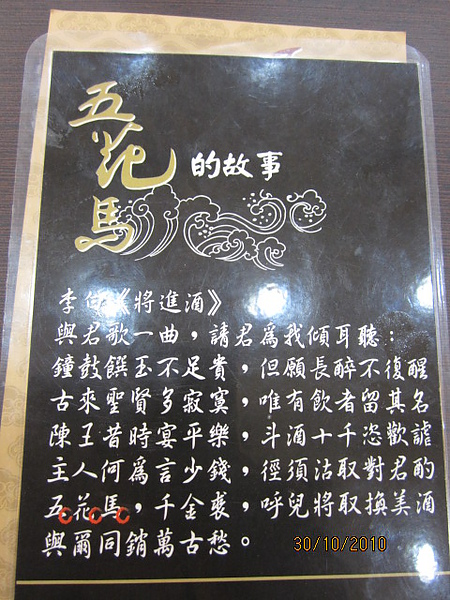 五花馬
的故事
李白《將進酒》
與君歌一曲，請君為我傾耳聽：
鐘鼓饌玉不足貴，但願長醉不復醒
古來聖賢多寂寞，唯有飲者留其名
陳王昔時宴平樂，斗酒十千恣歡謔
主人何為言少錢，徑須沽取對君酌
五花馬，千金裘，呼兒將取換美酒
與爾同銷萬古愁。
30/10/2010